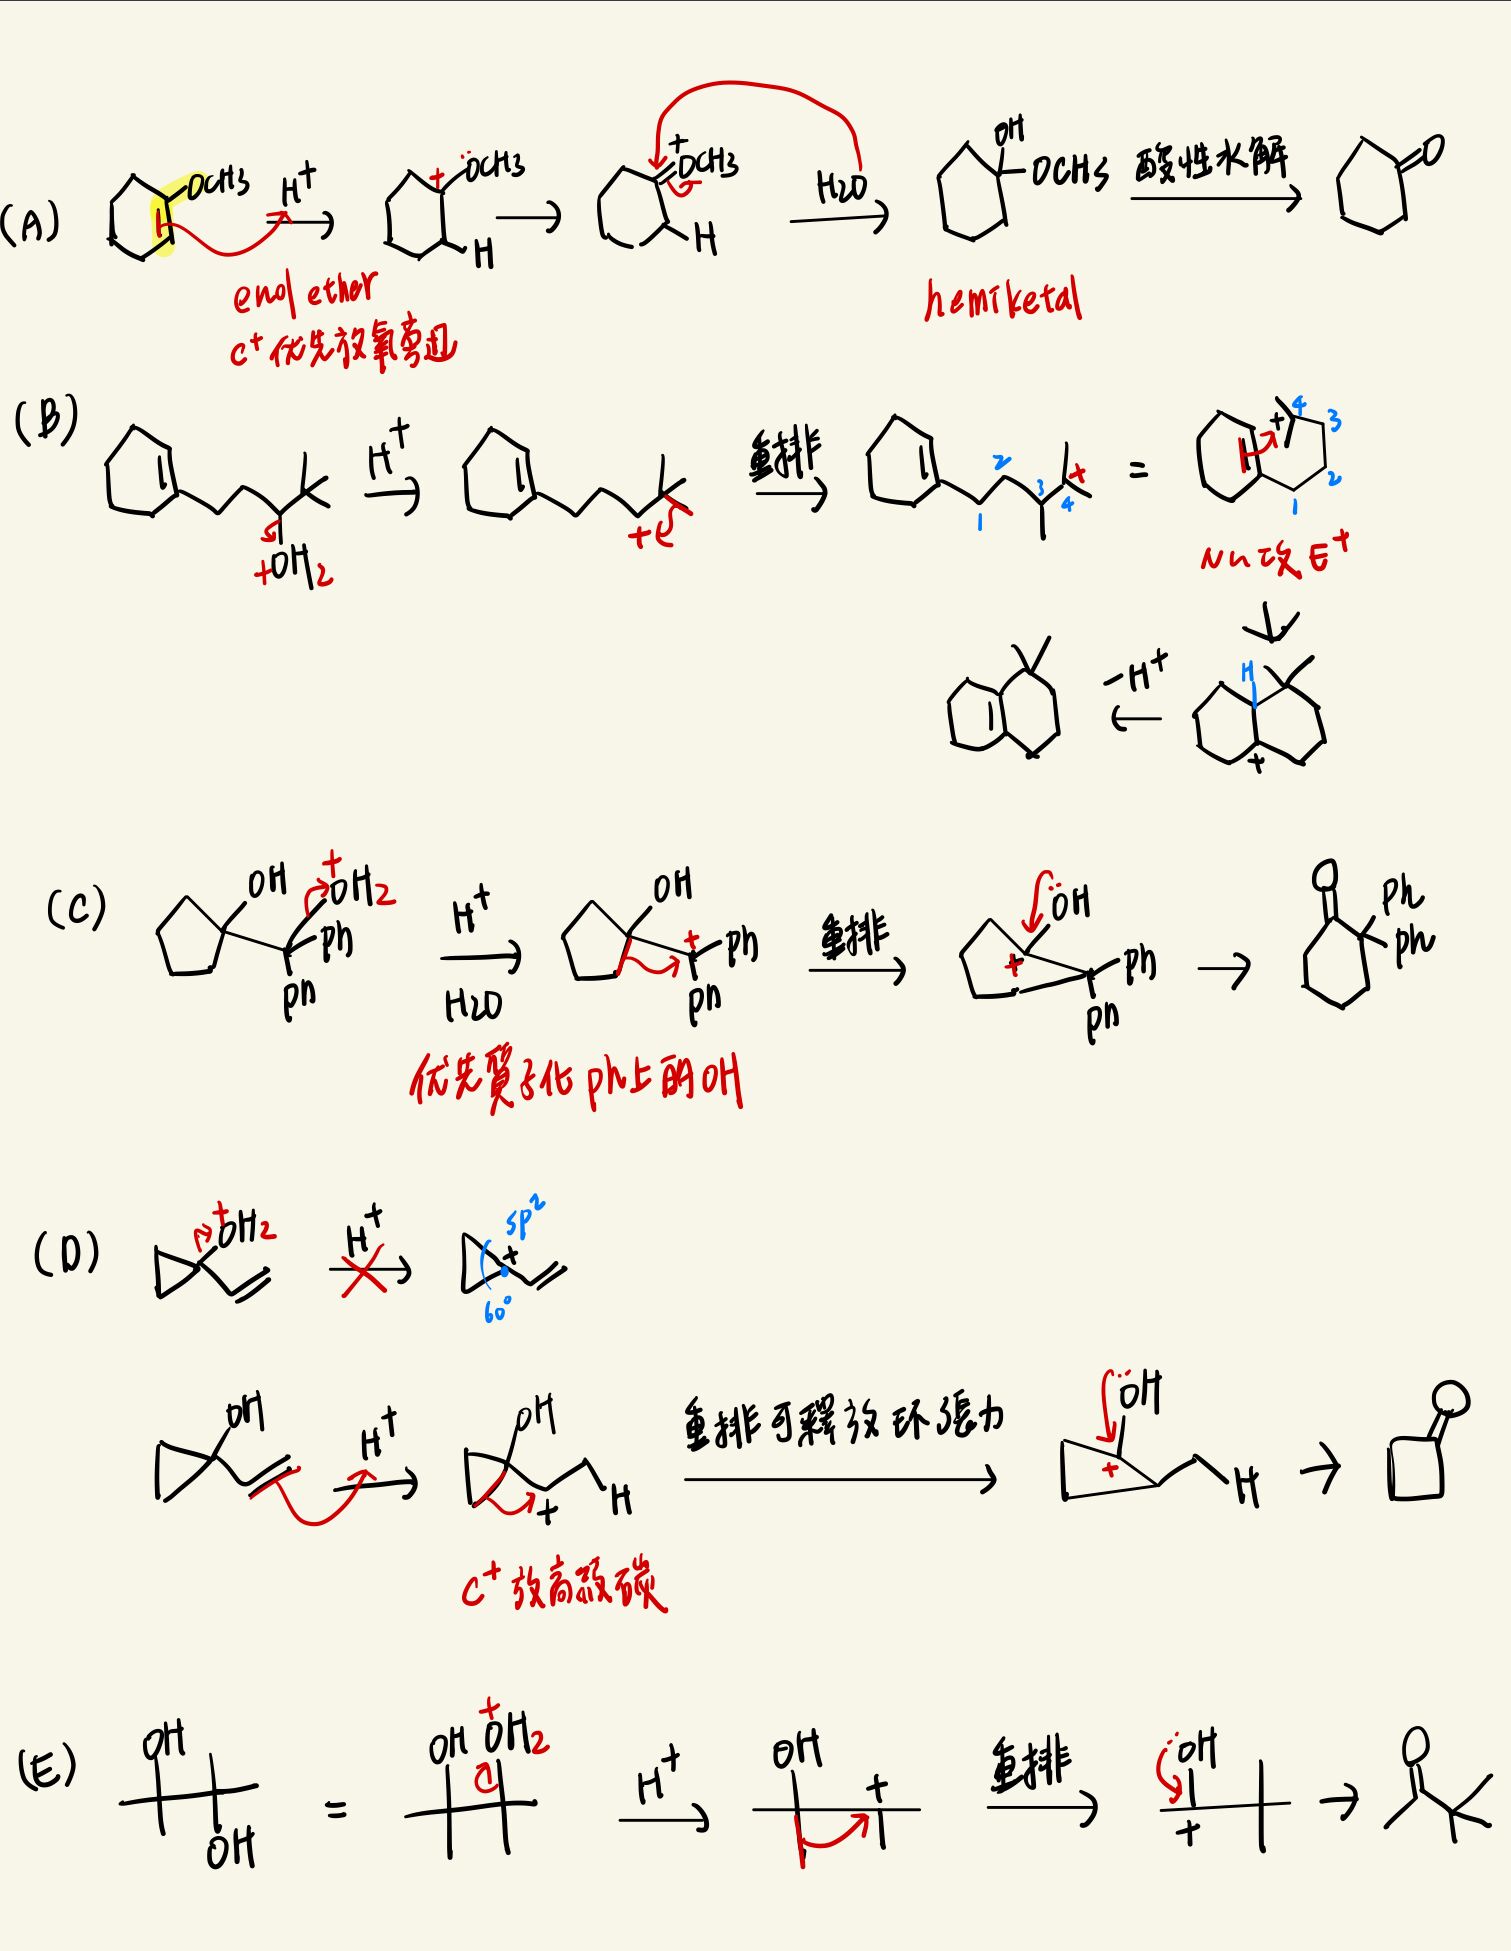 (A) OCH3 H+ + OCH3 H + OCH3 H H2O OH OCH3 酸性水解 O
enol ether
C+ 优先放氧旁边
hemiketal
(B) +OH2 H+ + 重排 1 2 3 4 + = + 4 3 2 1
Nu攻E+
H +
-H+
(C) OH +OH2 Ph Ph H+ H2O OH + Ph Ph 重排 OH + Ph Ph O Ph Ph
优先質子化 ph上的OH
(D) +OH2 H+ sp² + 60°
OH H+ OH + H 重排可釋放环張力 OH + H O
C+ 放高級碳
(E) OH OH = OH +OH2 H+ OH + 重排 OH + O